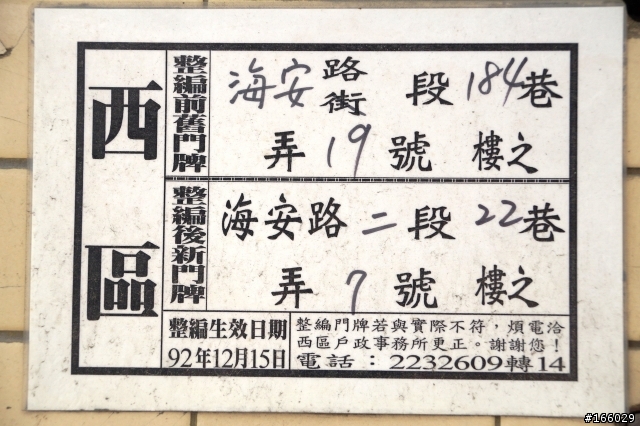 西區
整編前舊門牌
海安路街 段184巷
弄19號 樓之
整編後新門牌
海安路二段22巷
弄7號 樓之
整編生效日期
92年12月15日
整編門牌若與實際不符，煩電洽
西區戶政事務所更正。謝謝您！
電話：2232609轉14
#166029